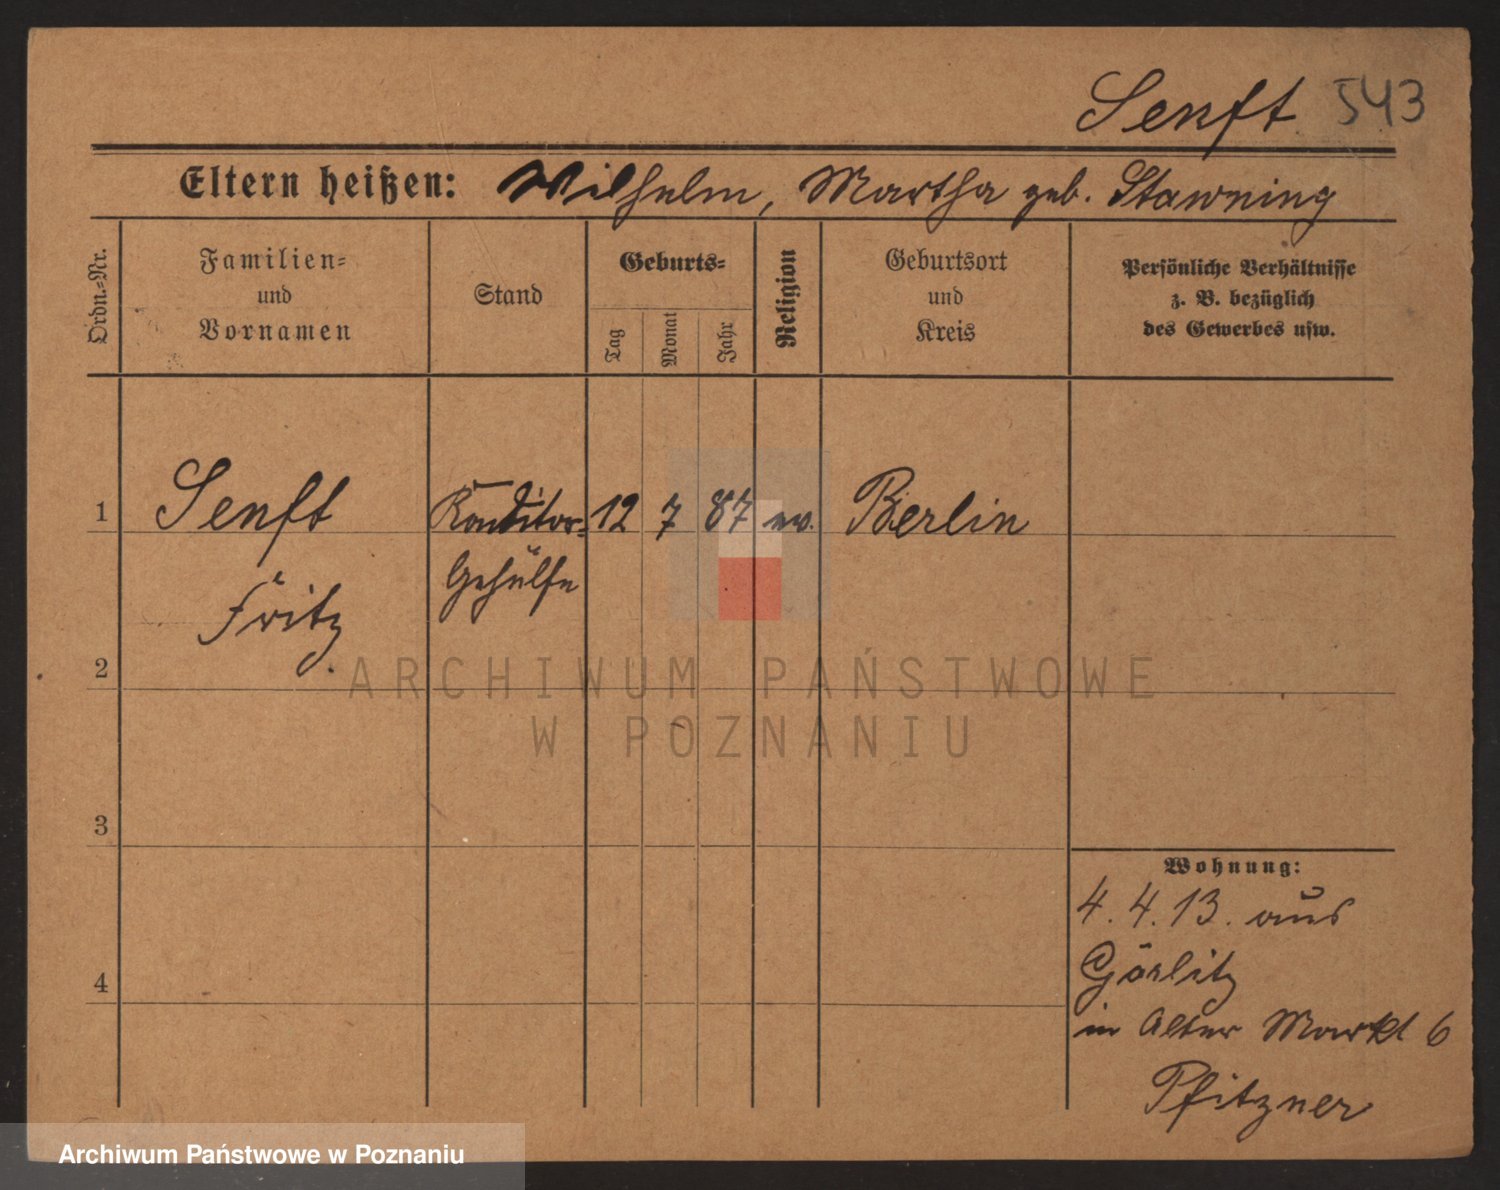 Senft 543
Eltern heißen: Wilhelm, Martha geb. Stawning
Ordn.-Nr.
Familien-
und
Vornamen
Stand
Geburts-
Tag
Monat
Jahr
Religion
Geburtsort
und
Kreis
Persönliche Verhältnisse
z. B. bezüglich
des Gewerbes usw.
1 Senft Konditor- 12 7 87 ev. Berlin
Gehülfe
Fritz
2
ARCHIWUM PAŃSTWOWE
W POZNANIU
3
Wohnung:
4.4.13. aus
Görlitz
4
in Alter Markt 6
Pfitzner
Archiwum Państwowe w Poznaniu